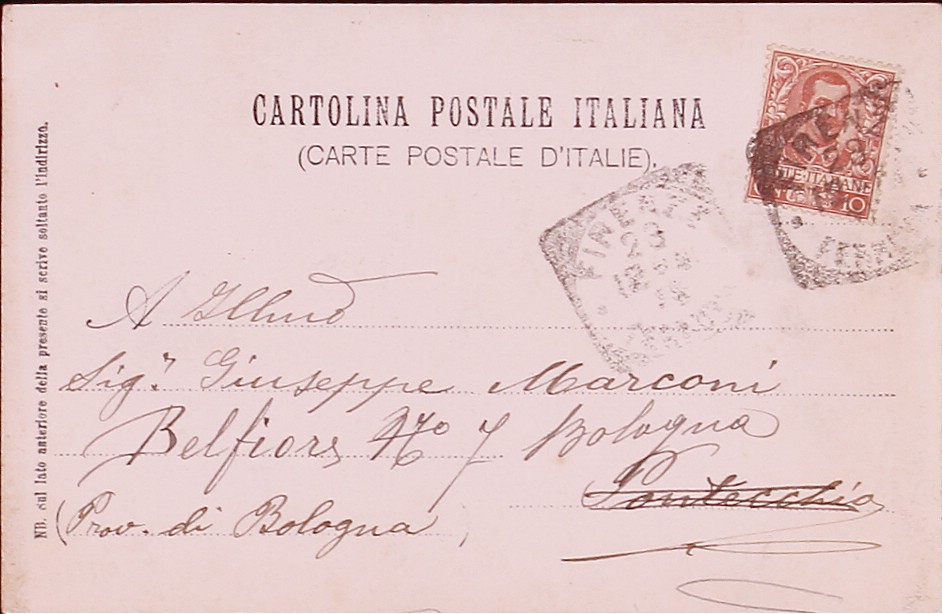 CARTOLINA POSTALE ITALIANA
(CARTE POSTALE D'ITALIE).
NB. sul lato anteriore della presente si scrive soltanto l'indirizzo.
POSTE·ITALIANE
10
FIRENZE
FERROVIA
A Illmo
Sigr. Giuseppe Marconi
Belfiore No 7 Bologna
Pontecchio
(Prov. di Bologna)